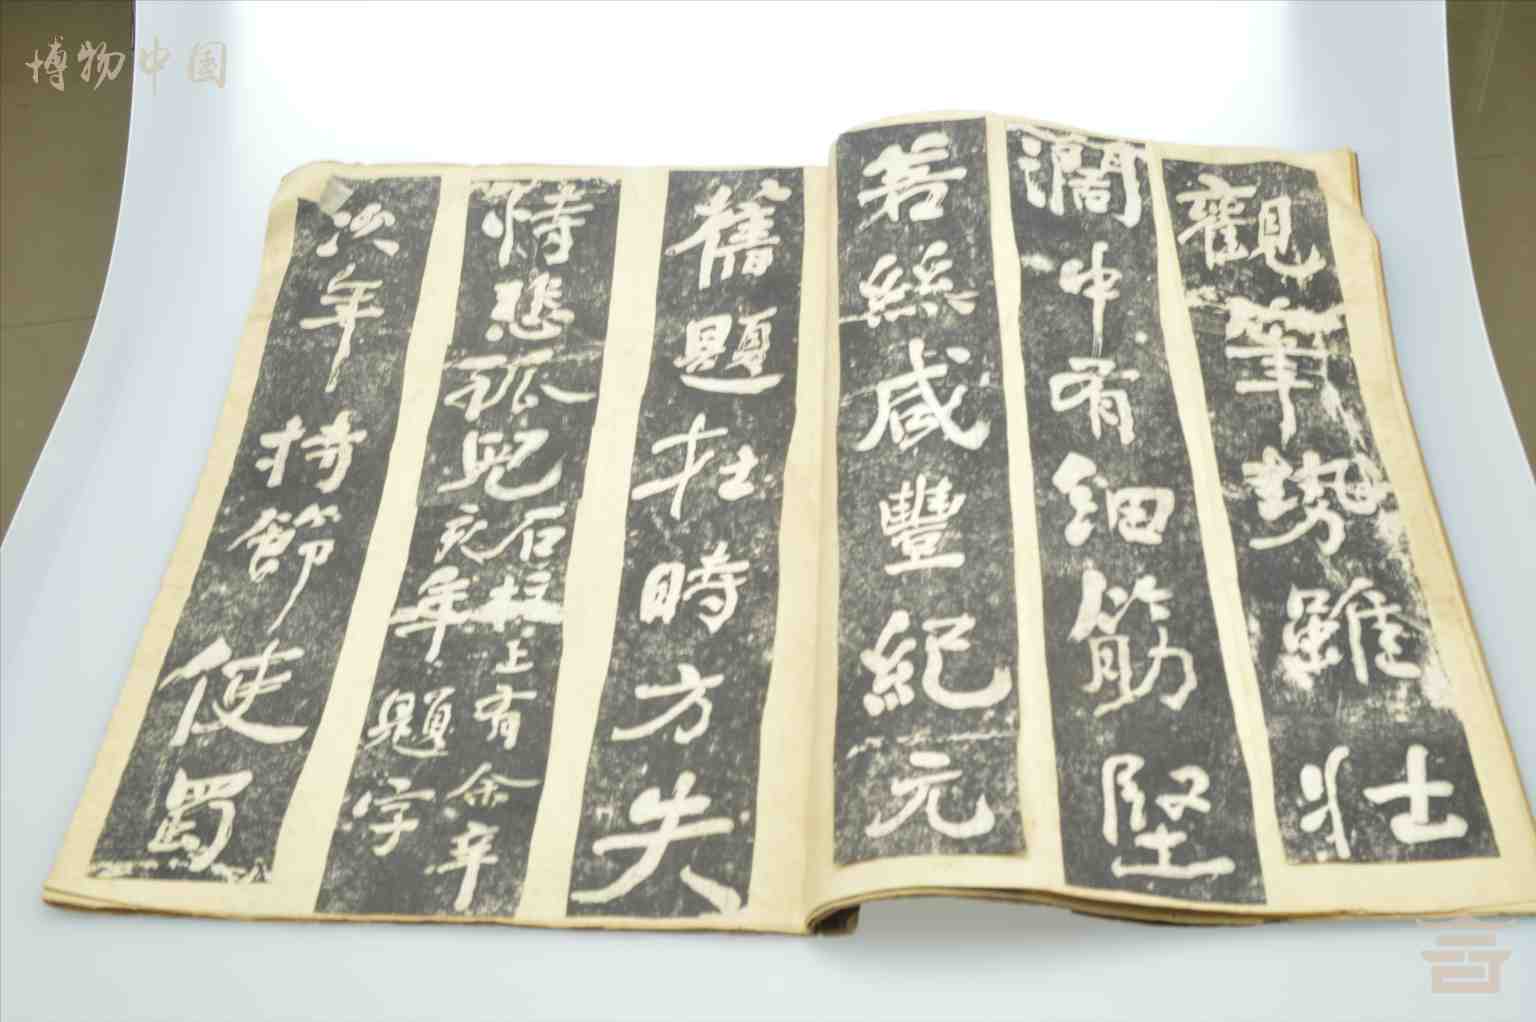 博物中国
觀筆勢雖壯
濶中有細筋堅
若絲咸豐紀元
舊題柱時方失
恃悲孤兒
石柱上有余辛
亥年題字
次年持節使蜀